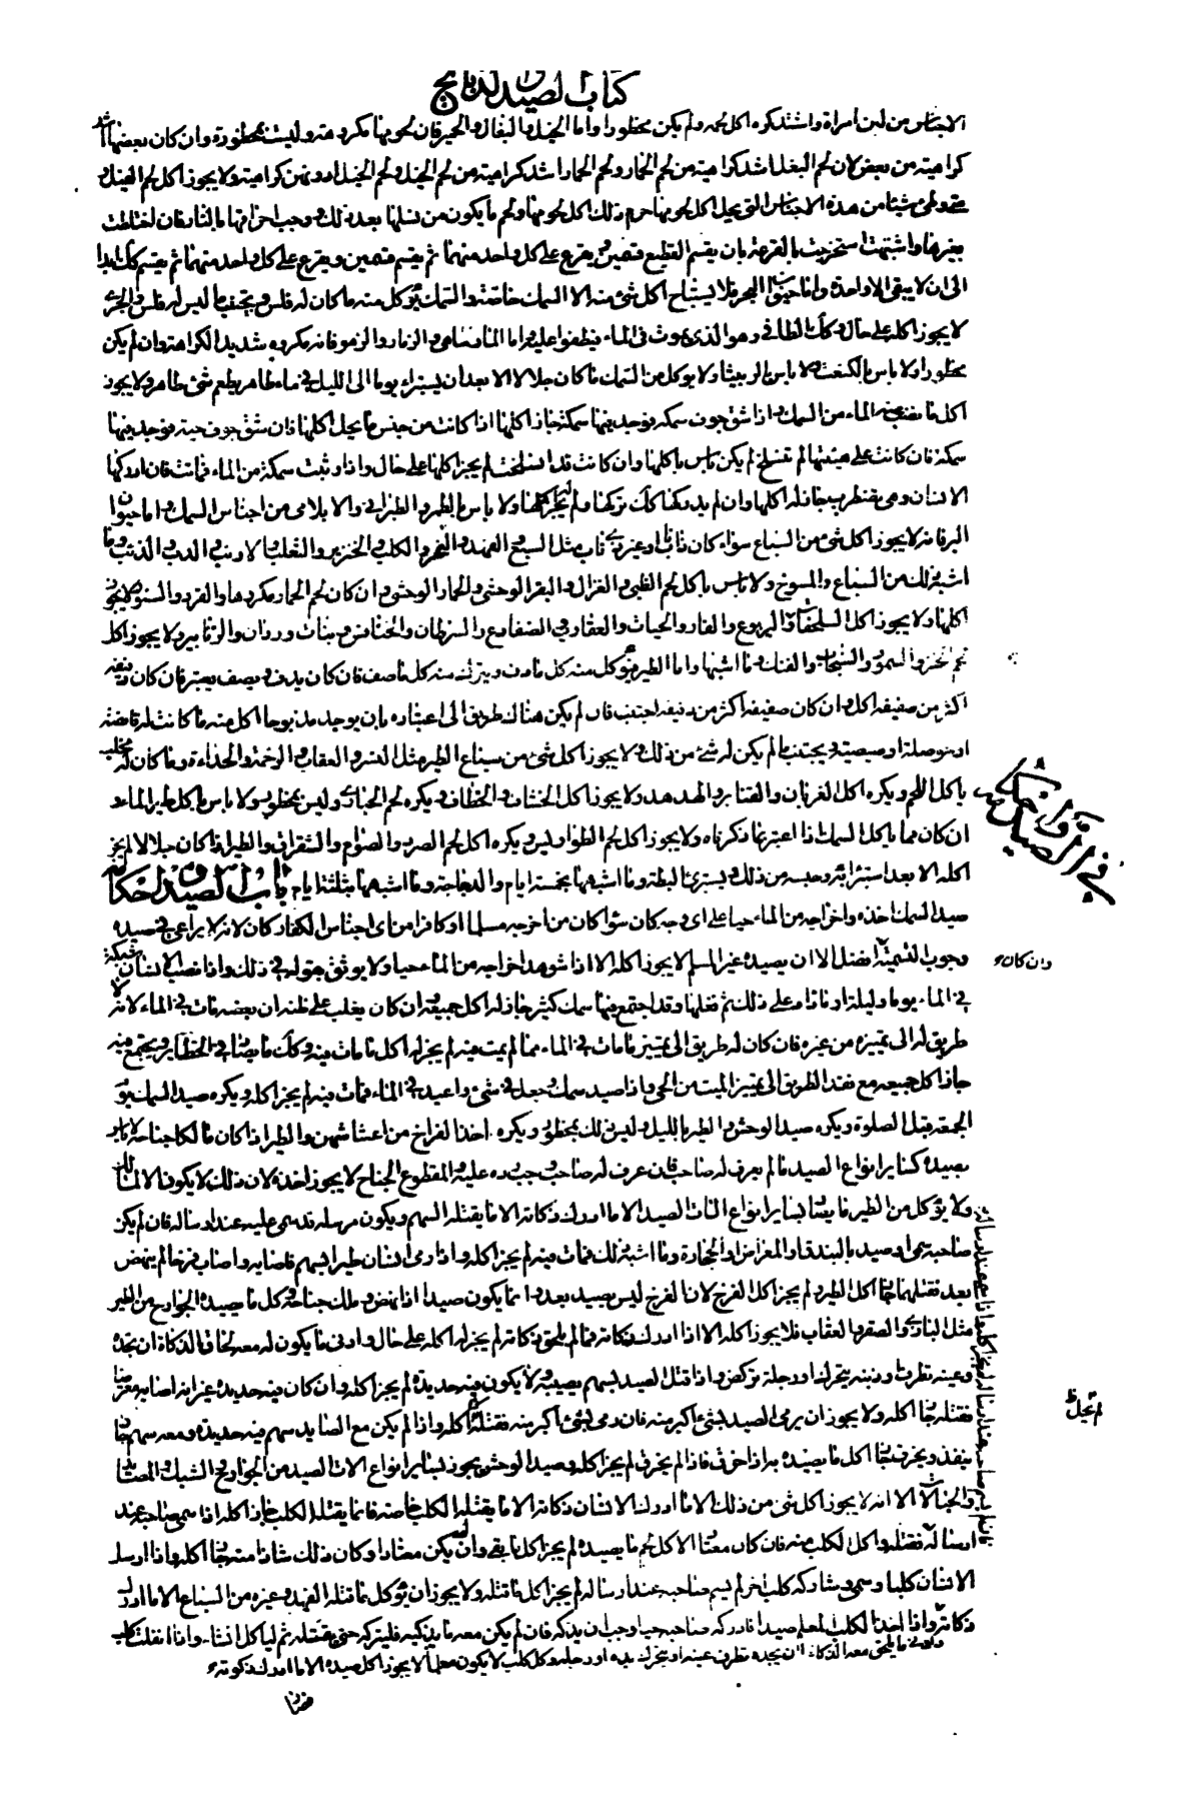 كتاب الصيد والذبايح
الاجناس من لبن امراة واشتد كره اكل لحمه ولم يكن محظورا واما الخيل والبغال والحمير فان لحومها مكروهة وليست بمحظورة وان كان بعضها اشد
كراهية من بعض لان لحم البغل اشد كراهية من لحم الحمار ولحم الحمار اشد كراهية من لحم الخيل ولحم الخيل ادونهن كراهية ولا يجوز اكل لحم الفيل و
متى وطئ شيئا من هذه الاجناس التي يحل اكل لحومها حرم ذلك اكل لحومها ولحم ما يكون من نسلها بعد ذلك ووجب احراقها بالنار فان اختلطت
بغيرها واشتبهت استخرجت بالقرعة بان يقسم القطيع قسمين ويقرع على كل واحد منهما ثم يقسم قسمين ويقرع على كل واحد منهما ثم يقسم كذلك ابدا
الى ان لا يبقى الا واحدة واما حيوان البحر فلا يستباح اكل شئ منه الا السمك خاصة والسمك يؤكل منه ما كان له فلس ويجتنب ما ليس له فلس والجري
لا يجوز اكله على حال وكذلك الطافي وهو الذي يموت في الماء فيطفوا عليه واما المارماهي والزمار والزهو فانه مكروه شديد الكراهة وان لم يكن
محظورا ولا باس بالكنعت ولا باس بالربيثا ولا يوكل من السمك ما كان جلالا الا بعد ان يستبراء يوما الى الليل في ماء طاهر يطعم شئ طاهر ولا يجوز
اكل ما نضب عنه الماء من السمك واذا شق جوف سمكة فوجد فيها سمكة جاز اكلها اذا كانت من جنس ما يحل اكلها فان شق جوف حية فوجد فيها
سمكة فان كانت على هيئتها لم تنسلخ لم يكن باس باكلها وان كانت قد انسلخت لم يجز اكلها على حال واذا وثبت سمكة من الماء فماتت فان ادركها
الانسان وهي تضطرب جاز له اكلها وان لم يدركها كذلك تركها ولم يجز اكلها ولا باس بالطمر والطبراني والابلامي من اجناس السمك واما حيوان
البر فانه لا يجوز اكل شئ من السباع سواء كان ذا ناب او غير ذي ناب مثل السبع والفهد والنمر والكلب والخنزير والثعلب والارنب والدب والذئب وما
اشبه ذلك من السباع والمسوخ ولا باس باكل لحم الظبي والغزال والبقر الوحشي والحمار الوحشي وان كان لحم الحمار مكروها والقرد والسنور لا يجوز
اكلها ولا يجوز اكل السلحفاة واليربوع والفار والحيات والعقارب والضفادع والسرطان والخنافس وبنات وردان والزنابير ولا يجوز اكل
لحم الخز والسمور والسنجاب والفنك وما اشبهها واما الطير فيؤكل منه كل ما دف ويترك منه كل ما صف فان كان يدف ويصف يعتبر فان كان دفيفه
اكثر من صفيفه اكل وان كان صفيفه اكثر من دفيفه اجتنب فان لم يكن هناك طريق الى اعتباره بان يوجد مذبوحا اكل منه ما كانت له قانصة
او حوصلة او صيصية ويجتنب ما لم يكن له شئ من ذلك ولا يجوز اكل شئ من سباع الطير مثل النسر والعقاب والرخمة والحداءة وما كان له مخلب
ياكل اللحم ويكره اكل الغربان والقنابر والهدهد ولا يجوز اكل الخشاف والخطاف ويكره لحم الحبارى وليس بمحظور ولا باس باكل طير الماء و
ان كان مما ياكل السمك اذا اعتبر بما ذكرناه ولا يجوز اكل لحم الطواويس ويكره اكل لحم الصرد والصوام والشقراق والطير اذا كان جلالا لم يجز
اكله الا بعد استبرائه وحبسه من ذلك ويستبرئ البطة وما اشبهها بخمسة ايام والدجاجة وما اشبهها بثلثة ايام باب الصيد واحكامه
صيد السمك اخذه واخراجه من الماء حيا على اى وجه كان سواء كان من اخرجه مسلما او كافرا من اى اجناس الكفار كان لانه لا يراعى في صيده
وجوب التسمية افضل الا ان يصيده غير المسلم لا يجوز اكله الا اذا شوهد اخراجه من الماء حيا ولا يوثق بقوله في ذلك واذا نصب الانسان شبكة
في الماء يوما وليلة او ما زاد على ذلك ثم قلعها وقد اجتمع فيها سمك كثير جاز له اكل جميعه وان كان يغلب على ظنه ان بعضه مات في الماء لانه لا
طريق له الى تمييزه من غيره فان كان له طريق الى تمييز ما مات في الماء مما لم يمت فيه لم يجز له اكل ما مات فيه وكذلك ما يصاد في الحظاير ويجتمع فيه
جاز اكل جميعه مع فقد الطريق الى تمييز الميت من الحي واذا صيد سمك وجعل في شئ واعيد في الماء فمات فيه لم يجز اكله ويكره صيد السمك يوم
الجمعة قبل الصلوة ويكره صيد الوحش والطير بالليل وليس ذلك بمحظور ويكره اخذ الفراخ من اعشاشهن والطير اذا كان مالكا جناحه لا باس
بصيده بسائر انواع الصيد ما لم يعرف له صاحب فان عرف له صاحب وجب رده عليه والمقطوع الجناح لا يجوز اخذه لان ذلك لا يكون الا لمالك
ولا يؤكل من الطير ما يصاد بسائر انواع الات الصيد الا ما ادرك ذكاته الا ما يقتله السهم ويكون مرسله قد سمى عليه عند ارساله فان لم يكن
صاحبه سمى او صيد بالبندق او المعراض او الحجارة وما اشبه ذلك فمات فيه لم يجز اكله واذا رمى انسان طيرا بسهم فاصابه واصاب فرخا لم ينهض
بعد فقتلهما جاز اكل الطير ولم يجز اكل الفرخ لان الفرخ ليس بصيد بعد وانما يكون صيدا اذا نهض وملك جناحه وكل ما يصيده الجوارح من الطير
مثل البازي والصقر والعقاب فلا يجوز اكله الا اذا ادرك ذكاته فما لم يلحق ذكاته لم يجز له اكله على حال وادنى ما يكون له معه لحاق الذكاة ان يجده
وعينه تطرف او ذنبه يتحرك او رجله تركض واذا قتل الصيد بسهم يصيبه ولا يكون فيه حديدة لم يجز اكله وان كان فيه حديدة غير انه اصابه معترضا
فقتله جاز اكله ولا يجوز ان يرمى الصيد بشئ اكبر منه فان رمى بشئ اكبر منه فقتله لم اكله واذا لم يكن مع الصايد سهم فيه حديدة ومعه سهم حاد
ينفذ ويخرق جاز اكل ما يصيده به اذا خرق فاذا لم يخرق لم يجز اكله وصيد الوحش يجوز بسائر انواع الات الصيد من الجوارح والشبك والمصائد
والحبالات الا انه لا يجوز اكل شئ من ذلك الا ما ادرك الانسان ذكاته الا ما يقتله الكلب خاصة فانما يقتله الكلب جاز اكله اذا سمى صاحبه عند
ارساله فقتله واكل الكلب منه فان كان معتادا لاكل لحم ما يصيده لم يجز اكل ما بقي وان لم يكن معتادا وكان ذلك شاذا منه جاز اكله واذا ارسل
الانسان كلبا وسمى وشاركه كلب اخر لم يسم صاحبه عند ارساله لم يجز اكل ما قتله ولا يجوز ان يؤكل ما قتله الفهد وغيره من السباع الا ما ادرك
ذكاته واذا اخذ الكلب المعلم صيدا فادركه صاحبه حيا وجب ان يذكه فان لم يكن معه ما يذكيه فليتركه حتى يقتله ثم لياكل ان شاء واذا انفلت كلب
وادنى ما يلحق معه الذكاة ان يجده تطرف عينه او يتحرك يده او رجله وكل كلب لا يكون معلما لا يجوز اكل صيده الا ما ادرك ذكوته
باب في الصيد واحكامه
وان كان
لم تحل ظ